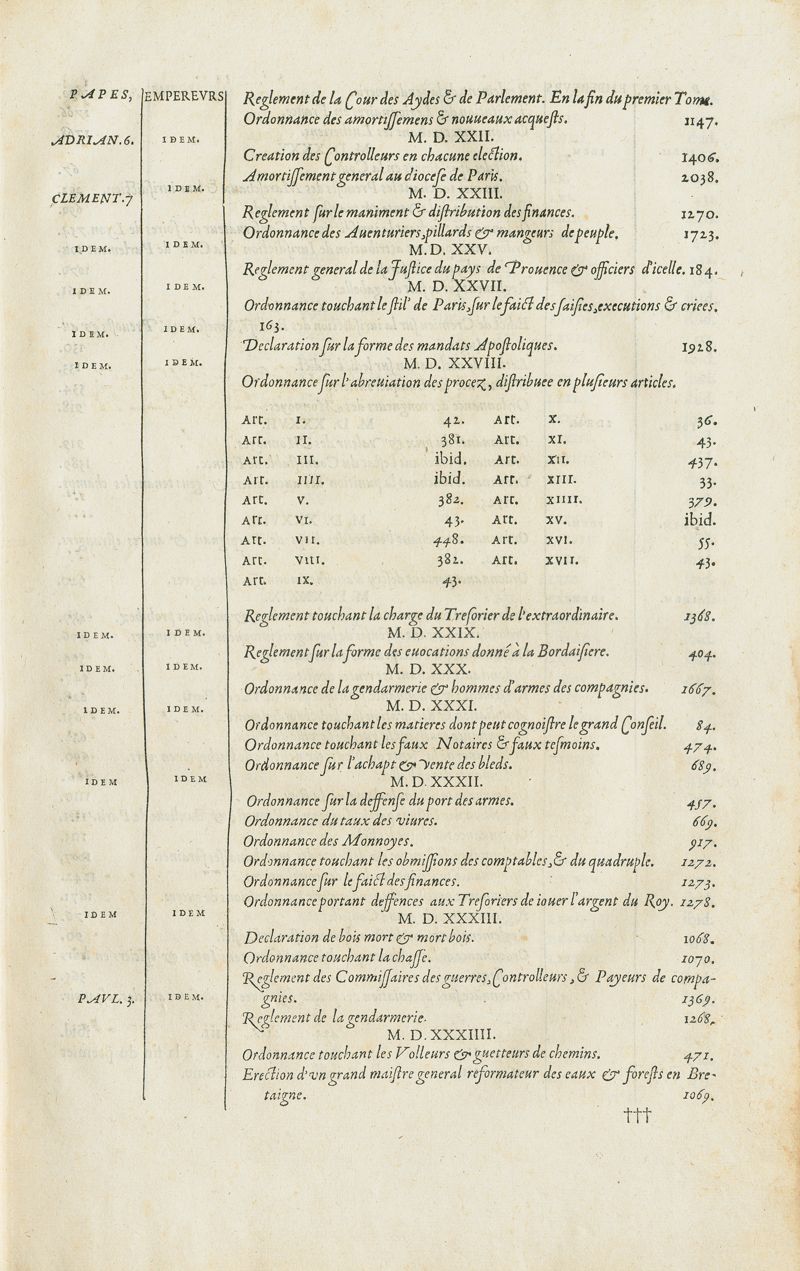 PAPES, EMPEREVRS Reglement de la Cour des Aydes & de Parlement. En la fin du premier Tome.
Ordonnance des amortiſſemens & nouueaux acqueſts. 1147.
ADRIAN. 6. IDEM. M. D. XXII.
Creation des Controlleurs en chacune election. 1406.
Amortiſſement general au dioceſe de Paris. 2038.
CLEMENT. 7 IDEM. M. D. XXIII.
Reglement ſur le maniment & diſtribution des finances. 1270.
Ordonnance des Auenturiers, pillards & mangeurs de peuple. 1723.
IDEM. IDEM. M. D. XXV.
Reglement general de la Juſtice du pays de Prouence & officiers d'icelle. 184.
IDEM. IDEM. M. D. XXVII.
Ordonnance touchant le ſtil' de Paris, ſur le faict des ſaiſies, executions & criees.
IDEM. IDEM. 163.
Declaration ſur la forme des mandats Apoſtoliques. 1928.
IDEM. IDEM. M. D. XXVIII.
Ordonnance ſur l'abreuiation des procez, diſtribuee en pluſieurs articles.
Art. I. 42. Art. X. 36.
Art. II. 381. Art. XI. 43.
Art. III. ibid. Art. XII. 437.
Art. IIII. ibid. Art. XIII. 33.
Art. V. 382. Art. XIIII. 379.
Art. VI. 43. Art. XV. ibid.
Art. VII. 448. Art. XVI. 55.
Art. VIII. 382. Art. XVII. 43.
Art. IX. 43.
Reglement touchant la charge du Treſorier de l'extraordinaire. 1368.
IDEM. IDEM. M. D. XXIX.
Reglement ſur la forme des euocations donné à la Bordaiſiere. 404.
IDEM. IDEM. M. D. XXX.
Ordonnance de la gendarmerie & hommes d'armes des compagnies. 1667.
IDEM. IDEM. M. D. XXXI.
Ordonnance touchant les matieres dont peut cognoiſtre le grand Conſeil. 84.
Ordonnance touchant les faux Notaires & faux teſmoins. 474.
Ordonnance ſur l'achapt & vente des bleds. 689.
IDEM IDEM M. D. XXXII.
Ordonnance ſur la deffenſe du port des armes. 457.
Ordonnance du taux des viures. 669.
Ordonnance des Monnoyes. 917.
Ordonnance touchant les obmiſſions des comptables, & du quadruple. 1272.
Ordonnance ſur le faict des finances. 1273.
Ordonnance portant deffences aux Treſoriers de iouer l'argent du Roy. 1278.
IDEM IDEM M. D. XXXIII.
Declaration de bois mort & mort bois. 1068.
Ordonnance touchant la chaſſe. 1070.
Reglement des Commiſſaires des guerres, Controlleurs, & Payeurs de compa-
PAVL. 3. IDEM. gnies. 1369.
Reglement de la gendarmerie. 1268.
M. D. XXXIIII.
Ordonnance touchant les Volleurs & guetteurs de chemins. 471.
Erection d'vn grand maiſtre general reformateur des eaux & foreſts en Bre-
taigne. 1069.
†††